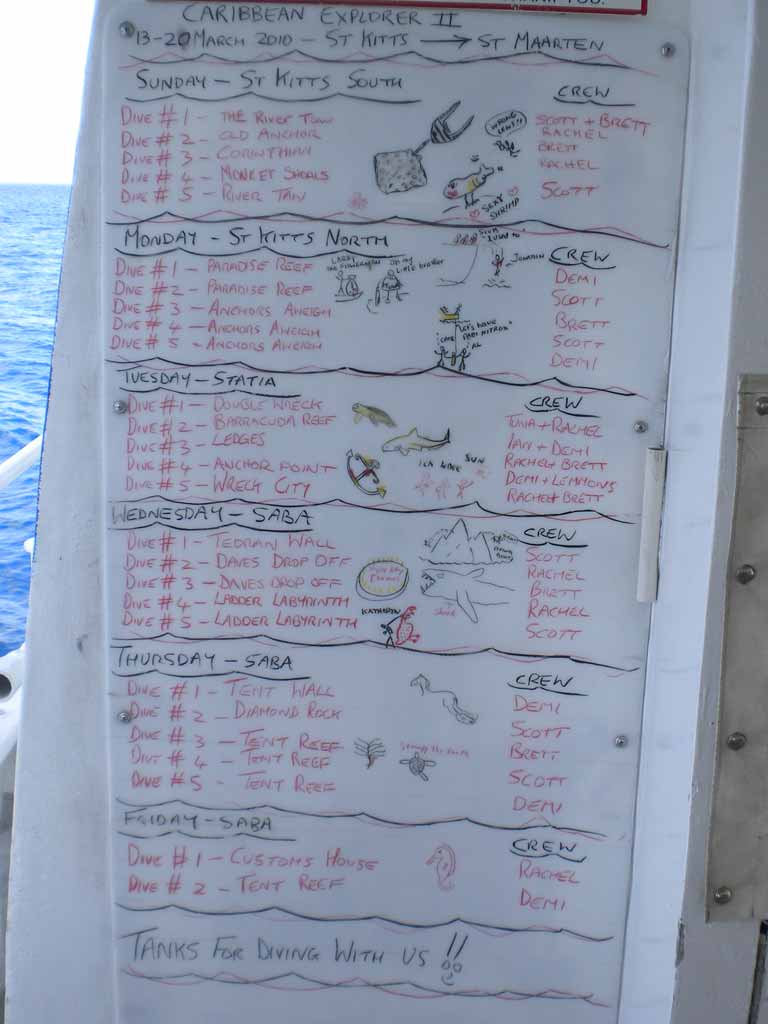 CARIBBEAN EXPLORER II
13-20 MARCH 2010 - ST KITTS → ST MAARTEN
SUNDAY - ST KITTS SOUTH
CREW
DIVE #1 - THE RIVER TAW
SCOTT + BRETT
DIVE #2 - OLD ANCHOR
RACHEL
DIVE #3 - CORINTHIAN
BRETT
DIVE #4 - MONKEY SHOALS
RACHEL
DIVE #5 - RIVER TAW
SCOTT
WRONG
SEXY SHRIMP
MONDAY - ST KITTS NORTH
CREW
DIVE #1 - PARADISE REEF
DEMI
DIVE #2 - PARADISE REEF
SCOTT
DIVE #3 - ANCHORS AWEIGH
BRETT
DIVE #4 - ANCHORS AWEIGH
SCOTT
DIVE #5 - ANCHORS AWEIGH
DEMI
LITTLE BROTHER
AL
TUESDAY - STATIA
CREW
DIVE #1 - DOUBLE WRECK
TUNA + RACHEL
DIVE #2 - BARRACUDA REEF
IAN + DEMI
DIVE #3 - LEDGES
RACHEL + BRETT
DIVE #4 - ANCHOR POINT
DEMI + LEMMONS
DIVE #5 - WRECK CITY
RACHEL + BRETT
SUN
WEDNESDAY - SABA
CREW
DIVE #1 - TEDRAN WALL
SCOTT
DIVE #2 - DAVES DROP OFF
RACHEL
DIVE #3 - DAVES DROP OFF
BRETT
DIVE #4 - LADDER LABYRINTH
RACHEL
DIVE #5 - LADDER LABYRINTH
SCOTT
KATHRYN
THURSDAY - SABA
CREW
DIVE #1 - TENT WALL
DEMI
DIVE #2 - DIAMOND ROCK
SCOTT
DIVE #3 - TENT REEF
BRETT
DIVE #4 - TENT REEF
SCOTT
DIVE #5 - TENT REEF
DEMI
FRIDAY - SABA
CREW
DIVE #1 - CUSTOMS HOUSE
RACHEL
DIVE #2 - TENT REEF
DEMI
TANKS FOR DIVING WITH US !!